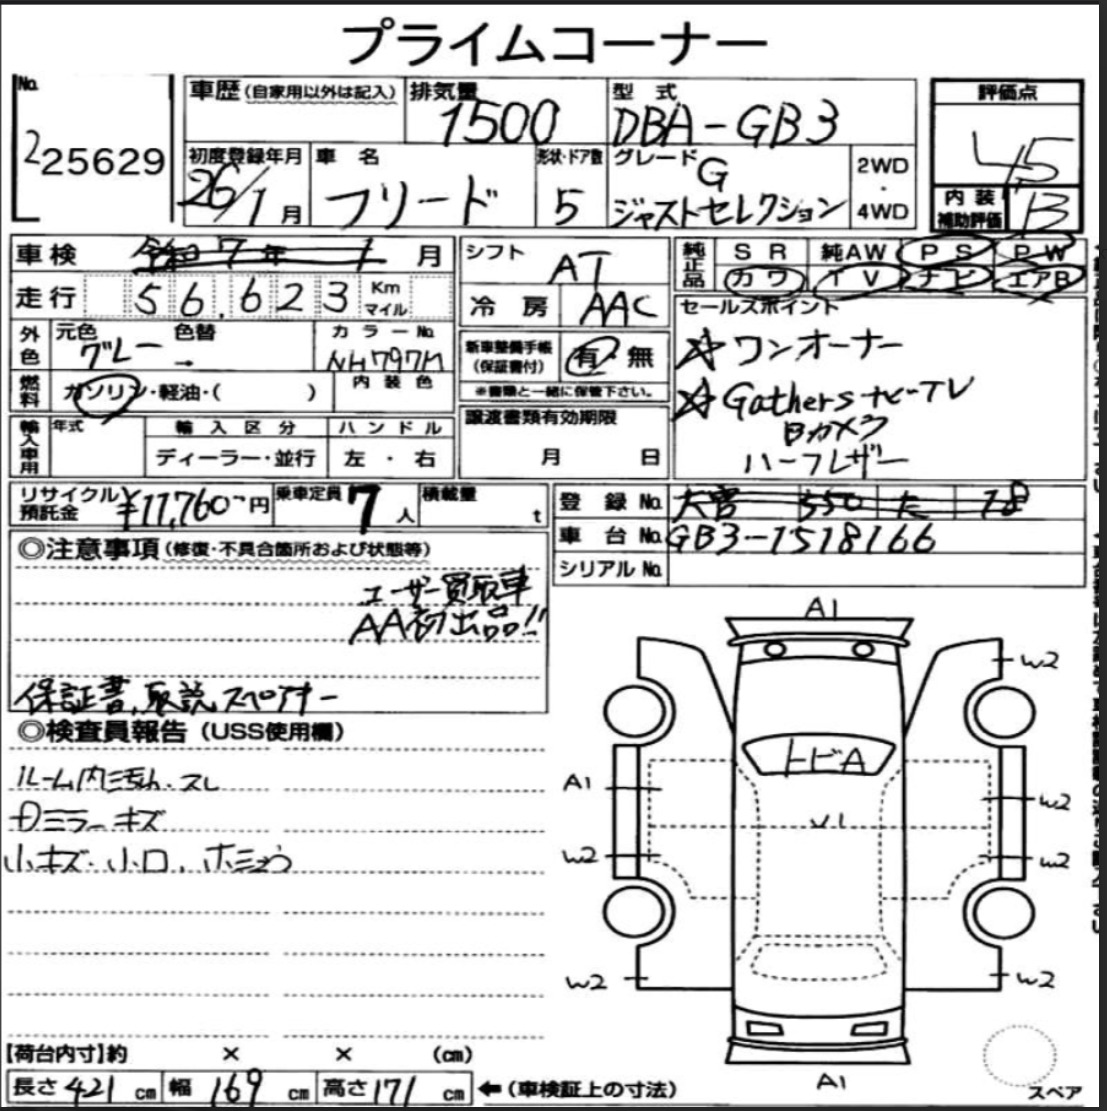 プライムコーナー
No.
225629
車歴(自家用以外は記入)
排気量
1500
型式
DBA-GB3
評価点
4.5
内装
補助評価
B
初度登録年月
26/1月
車名
フリード
形状・ドア数
5
グレード
G
ジャストセレクション
2WD
・
4WD
車検 令和7年1月
シフト
AT
純正品
SR 純AW PS PW
カワ TV ナビ エアB
走行 56,623 Km
マイル
冷房 AAC
セールスポイント
☆ワンオーナー
☆GathersナビTV
Bカメラ
ハーフレザー
外色
元色 色替
グレー →
カラーNo.
NH797M
新車整備手帳
(保証書付)
有・無
※書類と一緒に保管下さい。
燃料
ガソリン・軽油・( )
内装色
譲渡書類有効期限
月 日
輸入車用
年式
輸入区分
ディーラー・並行
ハンドル
左・右
リサイクル
預託金
¥11,760-円
乗車定員 7人
積載量
t
登録No. 大宮 550 た 18
車台No. GB3-1518166
シリアルNo.
◎注意事項(修復・不具合箇所および状態等)
ユーザー買取車
AA初出品!!
保証書、取説、スペアキー
◎検査員報告(USS使用欄)
ルーム内汚れ・スレ
Dミラーキズ
小キズ・小凹、ホミュウ
A1
W2
トビA
A1
W2
U1
W2
W2
W2
W2
A1
スペア
【荷台内寸】約 × × (cm)
長さ421cm 幅169cm 高さ171cm ←(車検証上の寸法)